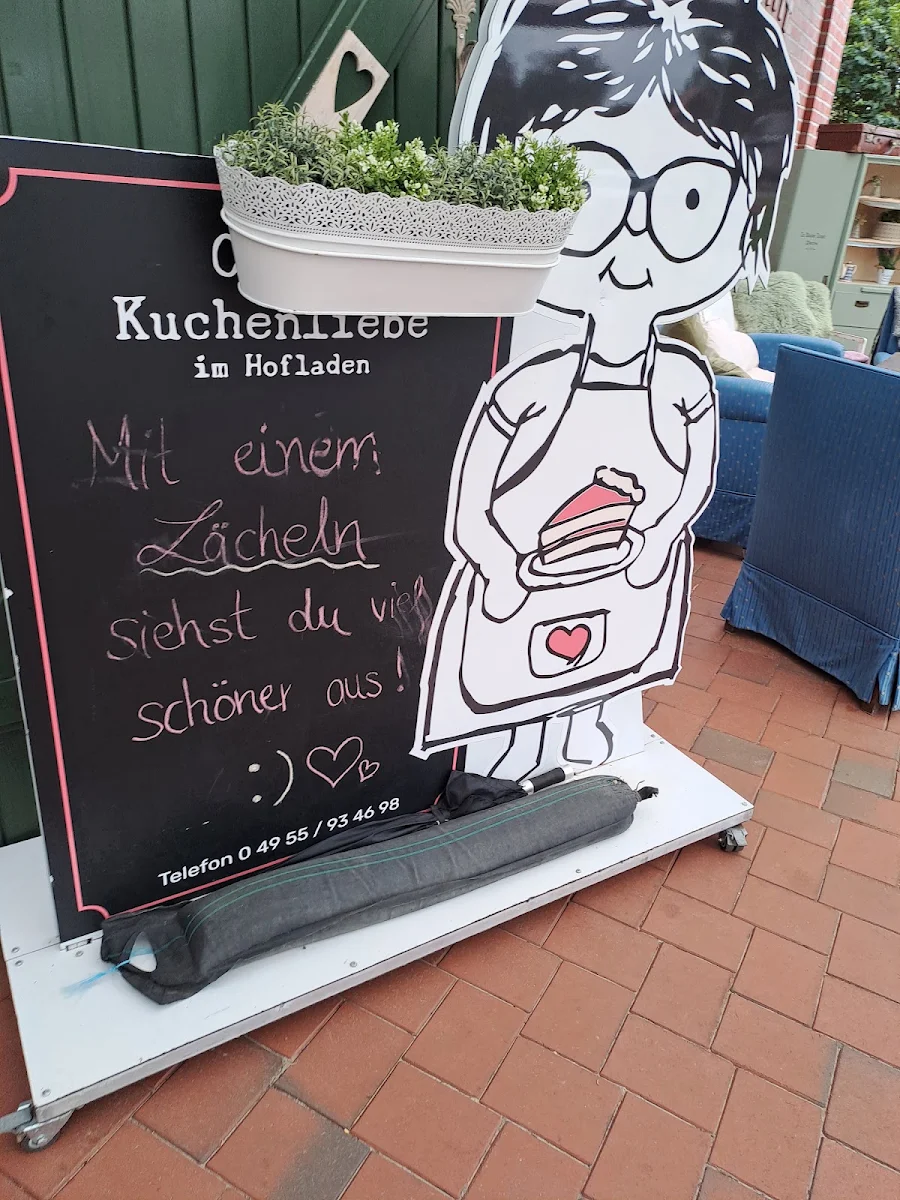 Kuchenliebe
im Hofladen
Mit einem
Lächeln
siehst du viel
schöner aus!
:)
Telefon 0 49 55 / 93 46 98